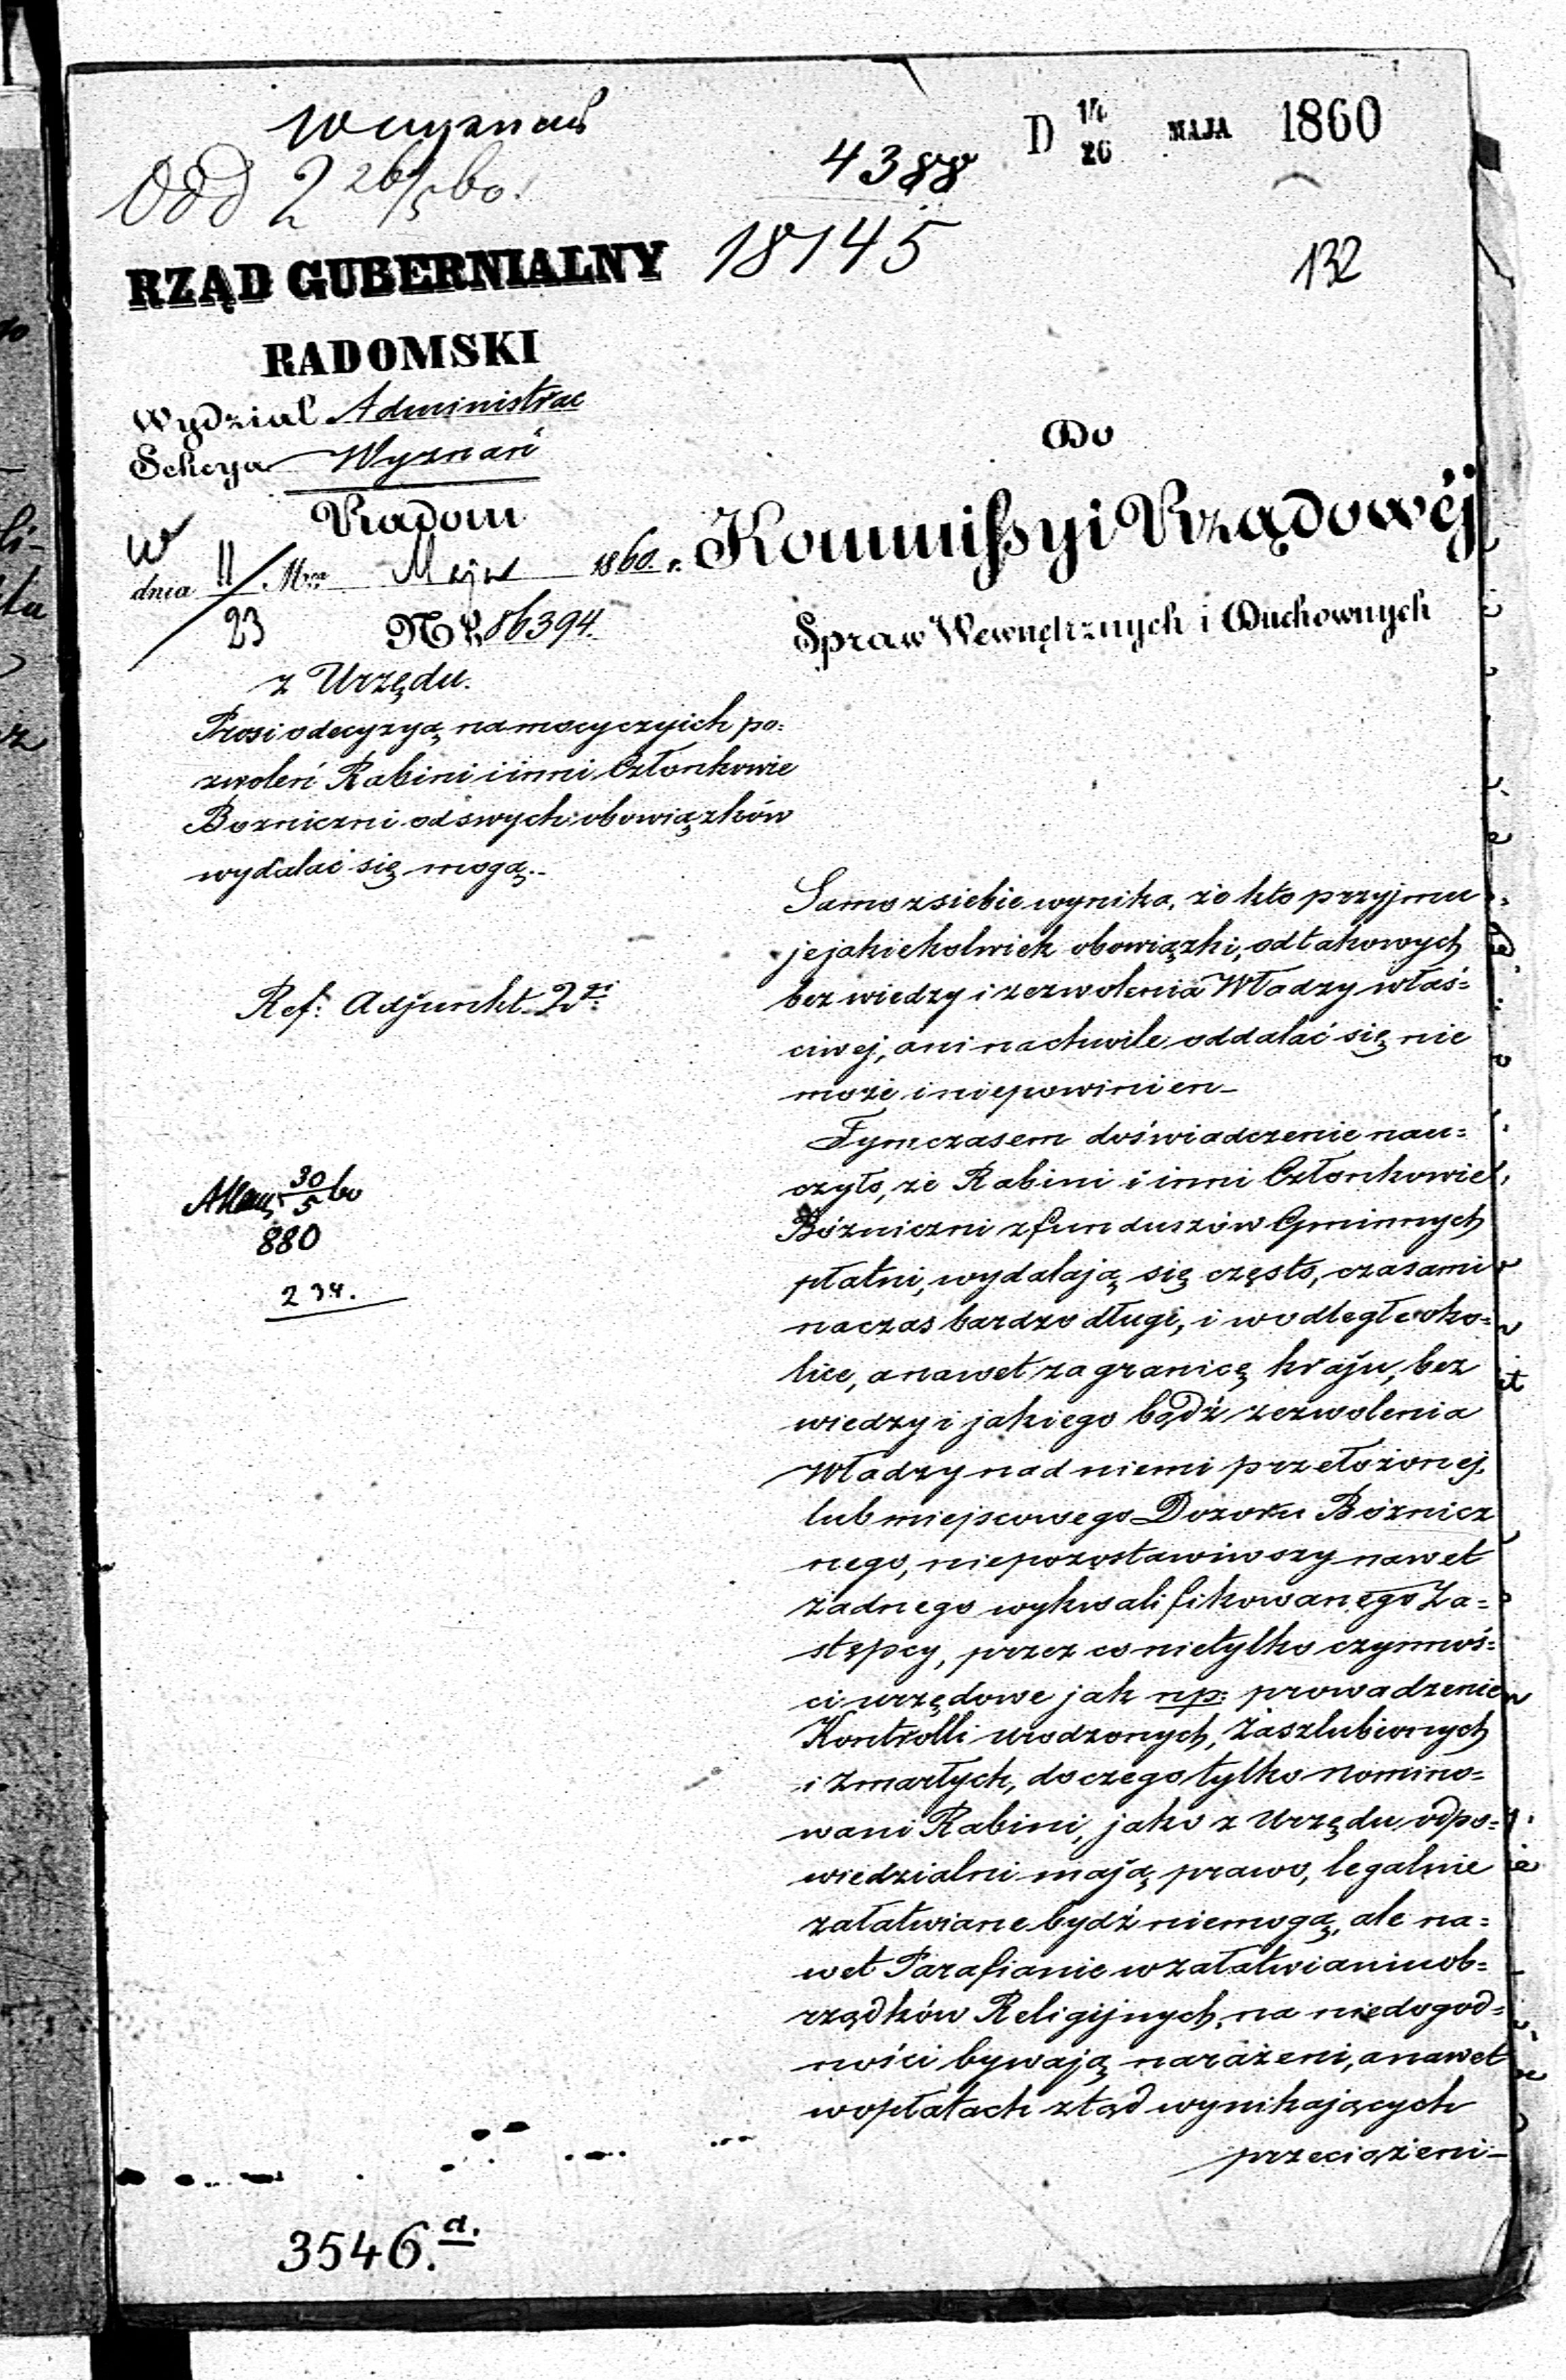 Wyznań
Odd 2 26/5 60.
4388
D 14/26 MAJA 1860
18145
132
RZĄD GUBERNIALNY
RADOMSKI
Wydział Administrac
Sekcya Wyznań
w Radom
dnia 11/23 Mca Maja 1860 r.
No 86394.
z Urzędu.
Prosi o decyzyą, na mocy czyich po=
zwoleń Rabini i inni Członkowie
Bozniczni od swych obowiązków
wydalać się mogą.-
Ref: Adjunkt 2gi
30/5 60
880
234.
Do
Kommissyi Rządowéj
Spraw Wewnętrznych i Duchownych
Samo z siebie wynika, że kto przyjmu
je jakiekolwiek obowiązki, od takowych
bez wiedzy i zezwolenia Władzy właś=
ciwej, ani na chwile oddalać się nie
może i niepowinien–
Tymczasem doświadczenie nau=
czyło, że Rabini i inni Członkowie
Bózniczni z funduszów Gminnych
płatni, wydalają się często, czasami
na czas bardzo długi, i w odległe oko=
lice, a nawet za granicę kraju, bez
wiedzy i jakiego bądź zezwolenia
Władzy nad niemi przełożonej,
lub miejscowego Dozoru Bóznicz
nego, niepozostawiwszy nawet
żadnego wykwalifikowanego Za=
stępcy, przez co nietylko czynnoś=
ci urzędowe jak np: prowadzenie
Kontrolli urodzonych, Zaszlubionych
i Zmarłych, do czego tylko nomino=
wani Rabini, jako z Urzędu odpo=
wiedzialni mają prawo, legalnie
załatwiane bydź niemogą, ale na=
wet Parafianie w załatwianiu ob=
rządków Religijnych, na niedogod=
ności bywają narażeni, a nawet
w opłatach ztąd wynikających
przeciążeni–
3546.a.